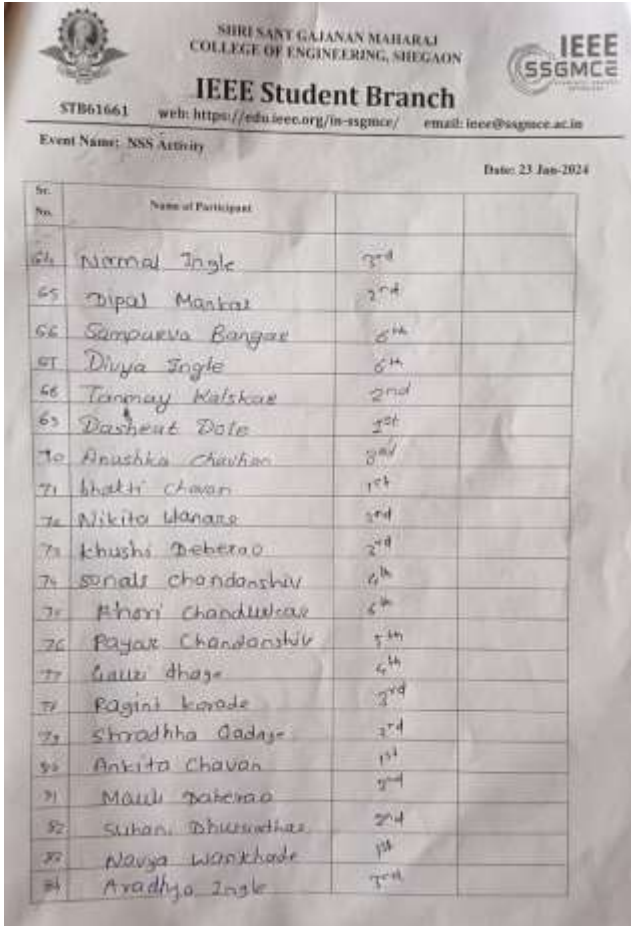 SHRI SANT GAJANAN MAHARAJ
COLLEGE OF ENGINEERING, SHEGAON
IEEE
SSGMCE
IEEE Student Branch
STB61661 web: https://edu.ieee.org/in-ssgmce/ email: ieee@ssgmce.ac.in
Event Name: NSS Activity
Date: 23 Jan-2024
Sr. No. Name of Participant
64 Nirmal Ingle 3rd
65 Dipal Mankar 3rd
66 Sampurva Bangar 6th
67 Divya Ingle 6th
68 Tanmay Kalskar 2nd
69 Dashrat Dole 1st
70 Anushka Chavhan 3rd
71 bhakti Chavan 1st
72 Nikita Wanare 3rd
73 khushi Deberao
74 sonali chandanshiv
75 Chandurkar 6th
76 Payar Chandanshiv 5th
77 Gauri dhage 4th
78 Ragini korade 3rd
79 Shradhha 3rd
80 Ankita Chavan 1st
81 Mauli Daberao 2nd
82 Suhani 2nd
83 Navya Wankhade 1st
84 Aradhya Ingle 3rd